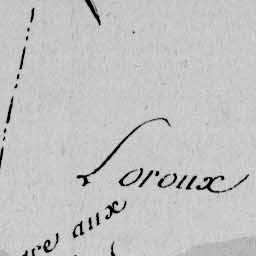 Loroux
re aux